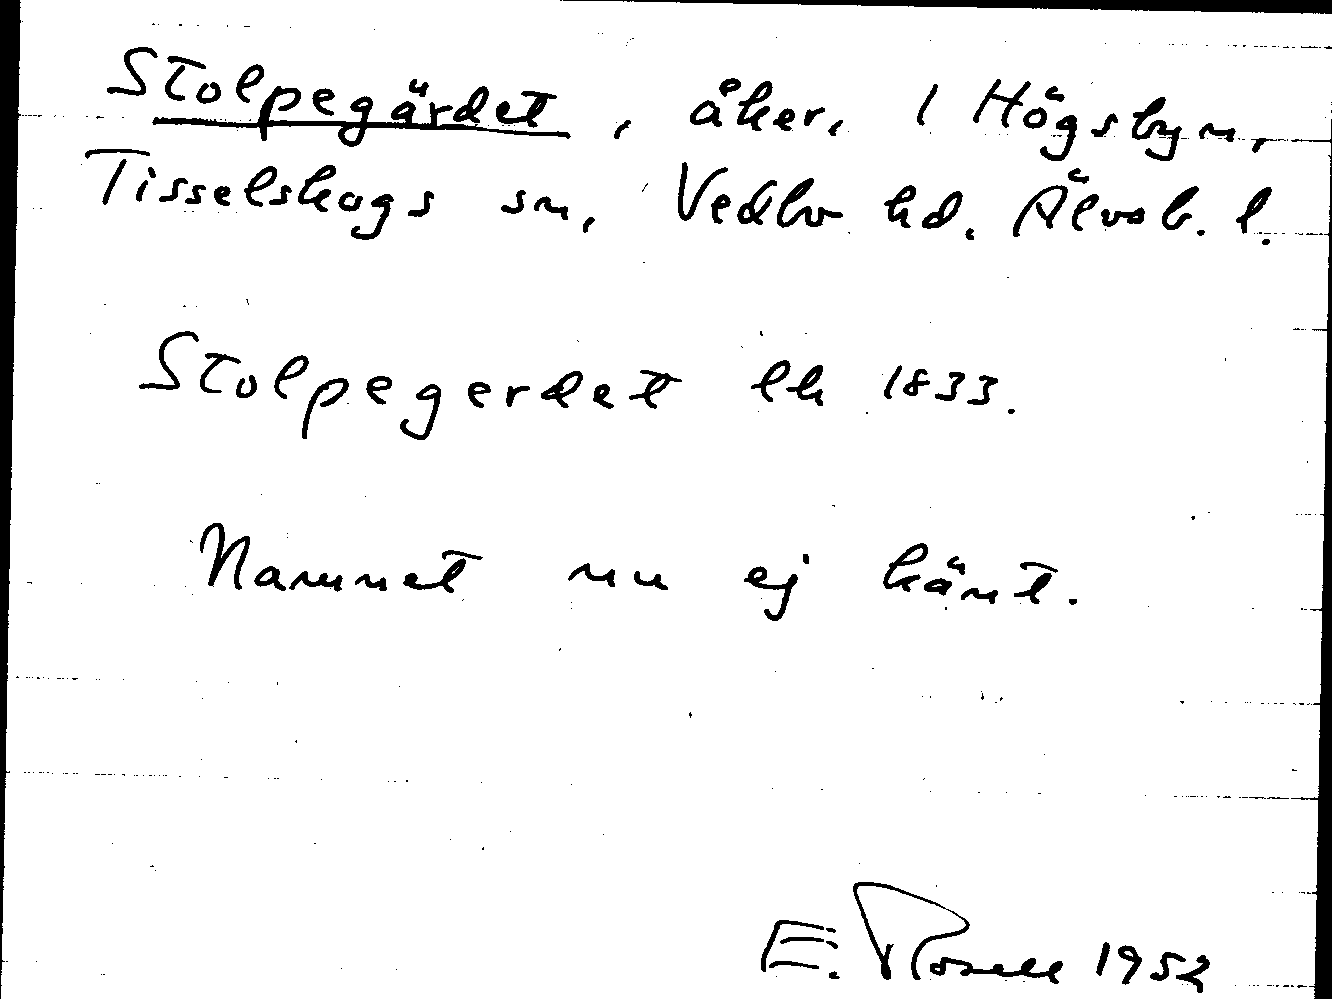 Stolpegärdet, åker, 1 Högsbyn,
Tisselskogs sn, Vedbo hd. Älvsb. l.
Stolpegerdet lh 1833.
Namnet nu ej känt.
E. Rosell 1952